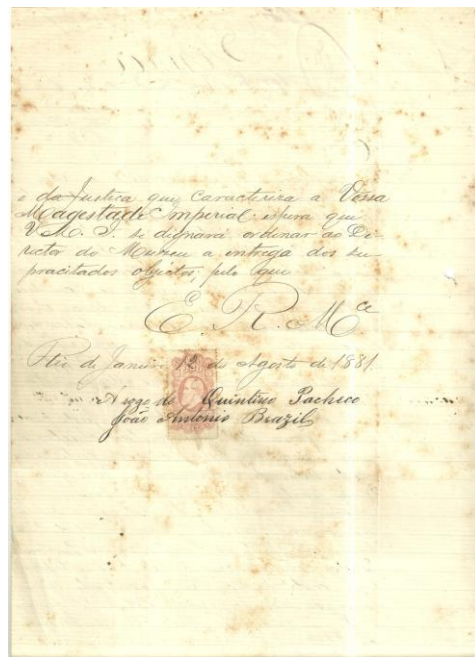 e da Justica que caracterisa a Vossa
Magestade Imperial espera que
V. M. I. se dignará ordenar ao Di-
rector do Muzeu a entrega dos su-
pracitados objectos; pelo que
E. R. Mce
Rio de Janeiro 12 de Agosto de 1881
A rogo de Quintino Pacheco
João Antonio Brazil